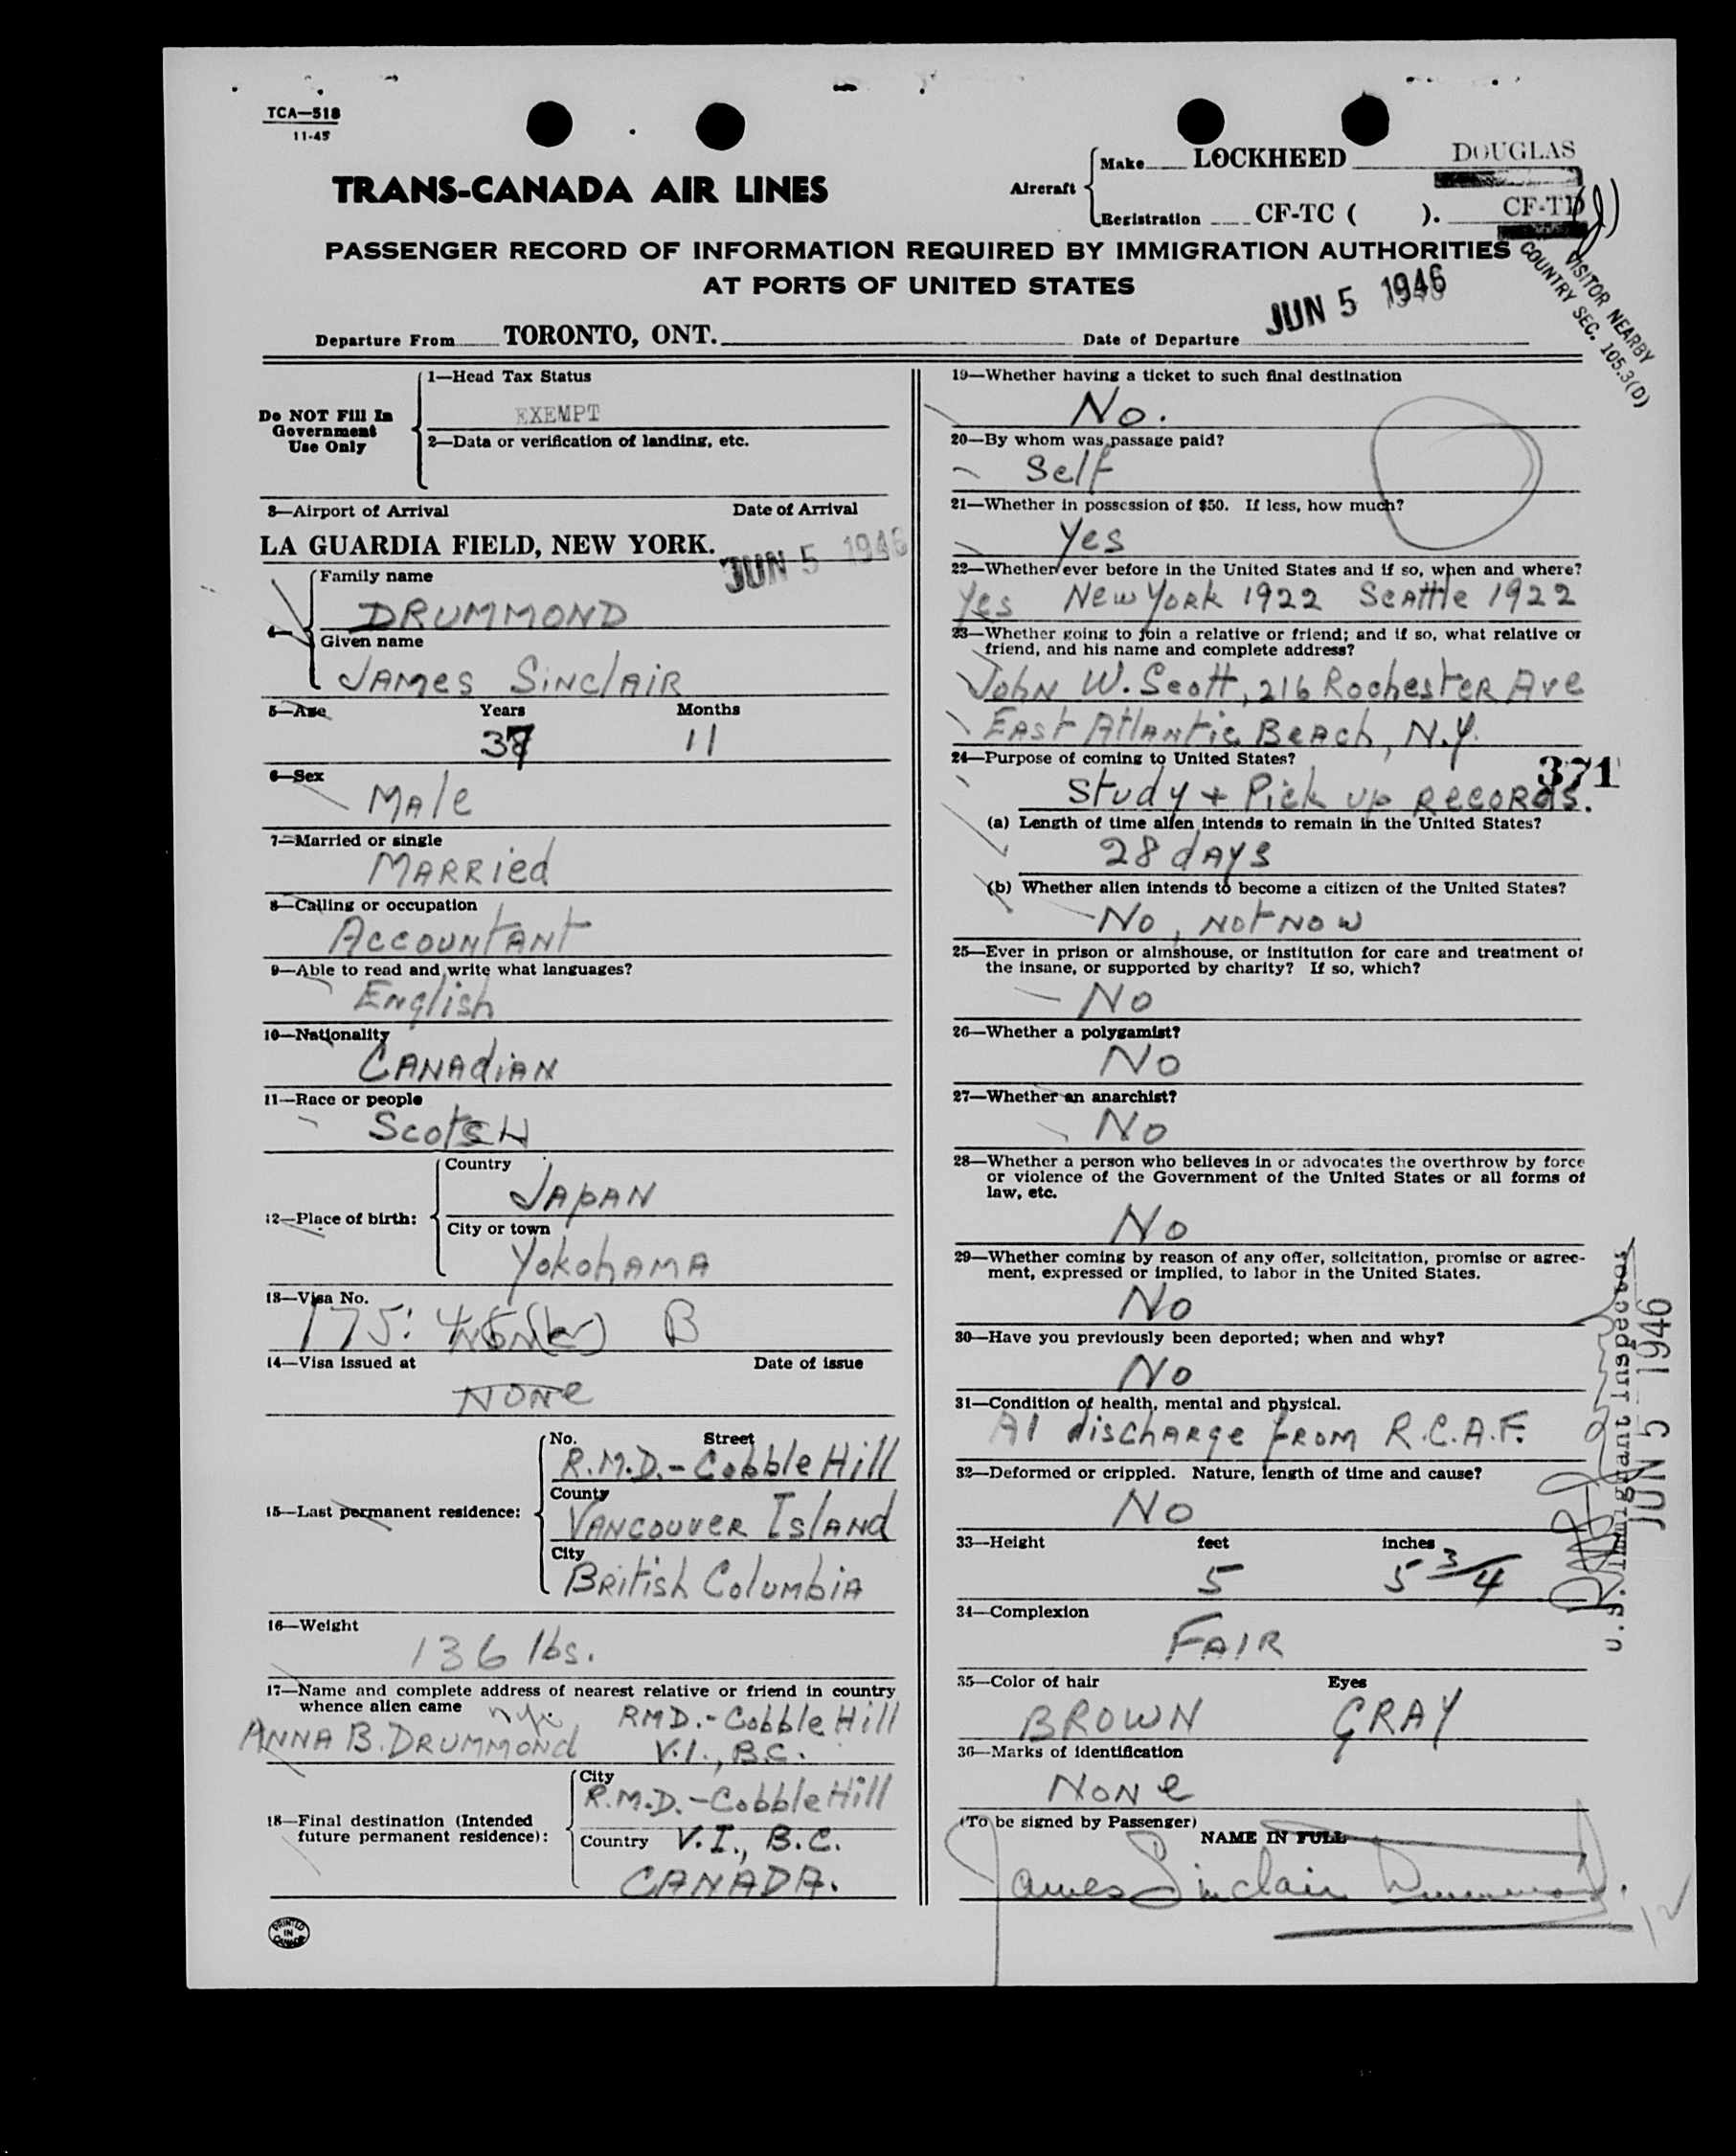 TCA—518
11-45
TRANS-CANADA AIR LINES
Aircraft
Make LOCKHEED DOUGLAS
Registration CF-TC ( ). CF-TD
PASSENGER RECORD OF INFORMATION REQUIRED BY IMMIGRATION AUTHORITIES
AT PORTS OF UNITED STATES
VISITOR NEARBY
COUNTRY SEC. 105.3(D)
Departure From TORONTO, ONT. Date of Departure JUN 5 1946
Do NOT Fill In
Government
Use Only
1—Head Tax Status
EXEMPT
2—Data or verification of landing, etc.
3—Airport of Arrival Date of Arrival
LA GUARDIA FIELD, NEW YORK. JUN 5 1946
4—
Family name
DRUMMOND
Given name
JAMES SINCLAIR
5—Age Years Months
37 11
6—Sex
MALE
7—Married or single
MARRIED
8—Calling or occupation
ACCOUNTANT
9—Able to read and write what languages?
English
10—Nationality
CANADIAN
11—Race or people
SCOTSH
12—Place of birth:
Country
JAPAN
City or town
YOKOHAMA
13—Visa No.
175: B
14—Visa issued at Date of issue
NONE
15—Last permanent residence:
No. Street
R.M.D.-Cobble Hill
County
VANCOUVER ISLAND
City
BRITISH COLUMBIA
16—Weight
136 lbs.
17—Name and complete address of nearest relative or friend in country
whence alien came RMD.-Cobble Hill
ANNA B. DRUMMOND V.I., B.C.
18—Final destination (Intended
future permanent residence):
City
R.M.D.-Cobble Hill
Country V.I., B.C.
CANADA.
PRINTED
IN
CANADA
19—Whether having a ticket to such final destination
No.
20—By whom was passage paid?
Self
21—Whether in possession of $50. If less, how much?
Yes
22—Whether ever before in the United States and if so, when and where?
Yes New York 1922 Seattle 1922
23—Whether going to join a relative or friend; and if so, what relative or
friend, and his name and complete address?
John W. Scott, 216 Rochester Ave
East Atlantic Beach, N.Y.
24—Purpose of coming to United States?
371
Study + Pick up records.
(a) Length of time alien intends to remain in the United States?
28 days
(b) Whether alien intends to become a citizen of the United States?
No, not now
25—Ever in prison or almshouse, or institution for care and treatment of
the insane, or supported by charity? If so, which?
No
26—Whether a polygamist?
No
27—Whether an anarchist?
No
28—Whether a person who believes in or advocates the overthrow by force
or violence of the Government of the United States or all forms of
law, etc.
No
29—Whether coming by reason of any offer, solicitation, promise or agree-
ment, expressed or implied, to labor in the United States.
No
30—Have you previously been deported; when and why?
No
31—Condition of health, mental and physical.
A1 discharge from R.C.A.F.
32—Deformed or crippled. Nature, length of time and cause?
No
33—Height feet inches
5 5 3/4
34—Complexion
FAIR
35—Color of hair Eyes
BROWN GRAY
36—Marks of identification
NONE
(To be signed by Passenger)
NAME IN FULL
James Sinclair Drummond.
U.S. Immigrant Inspector
JUN 5 1946